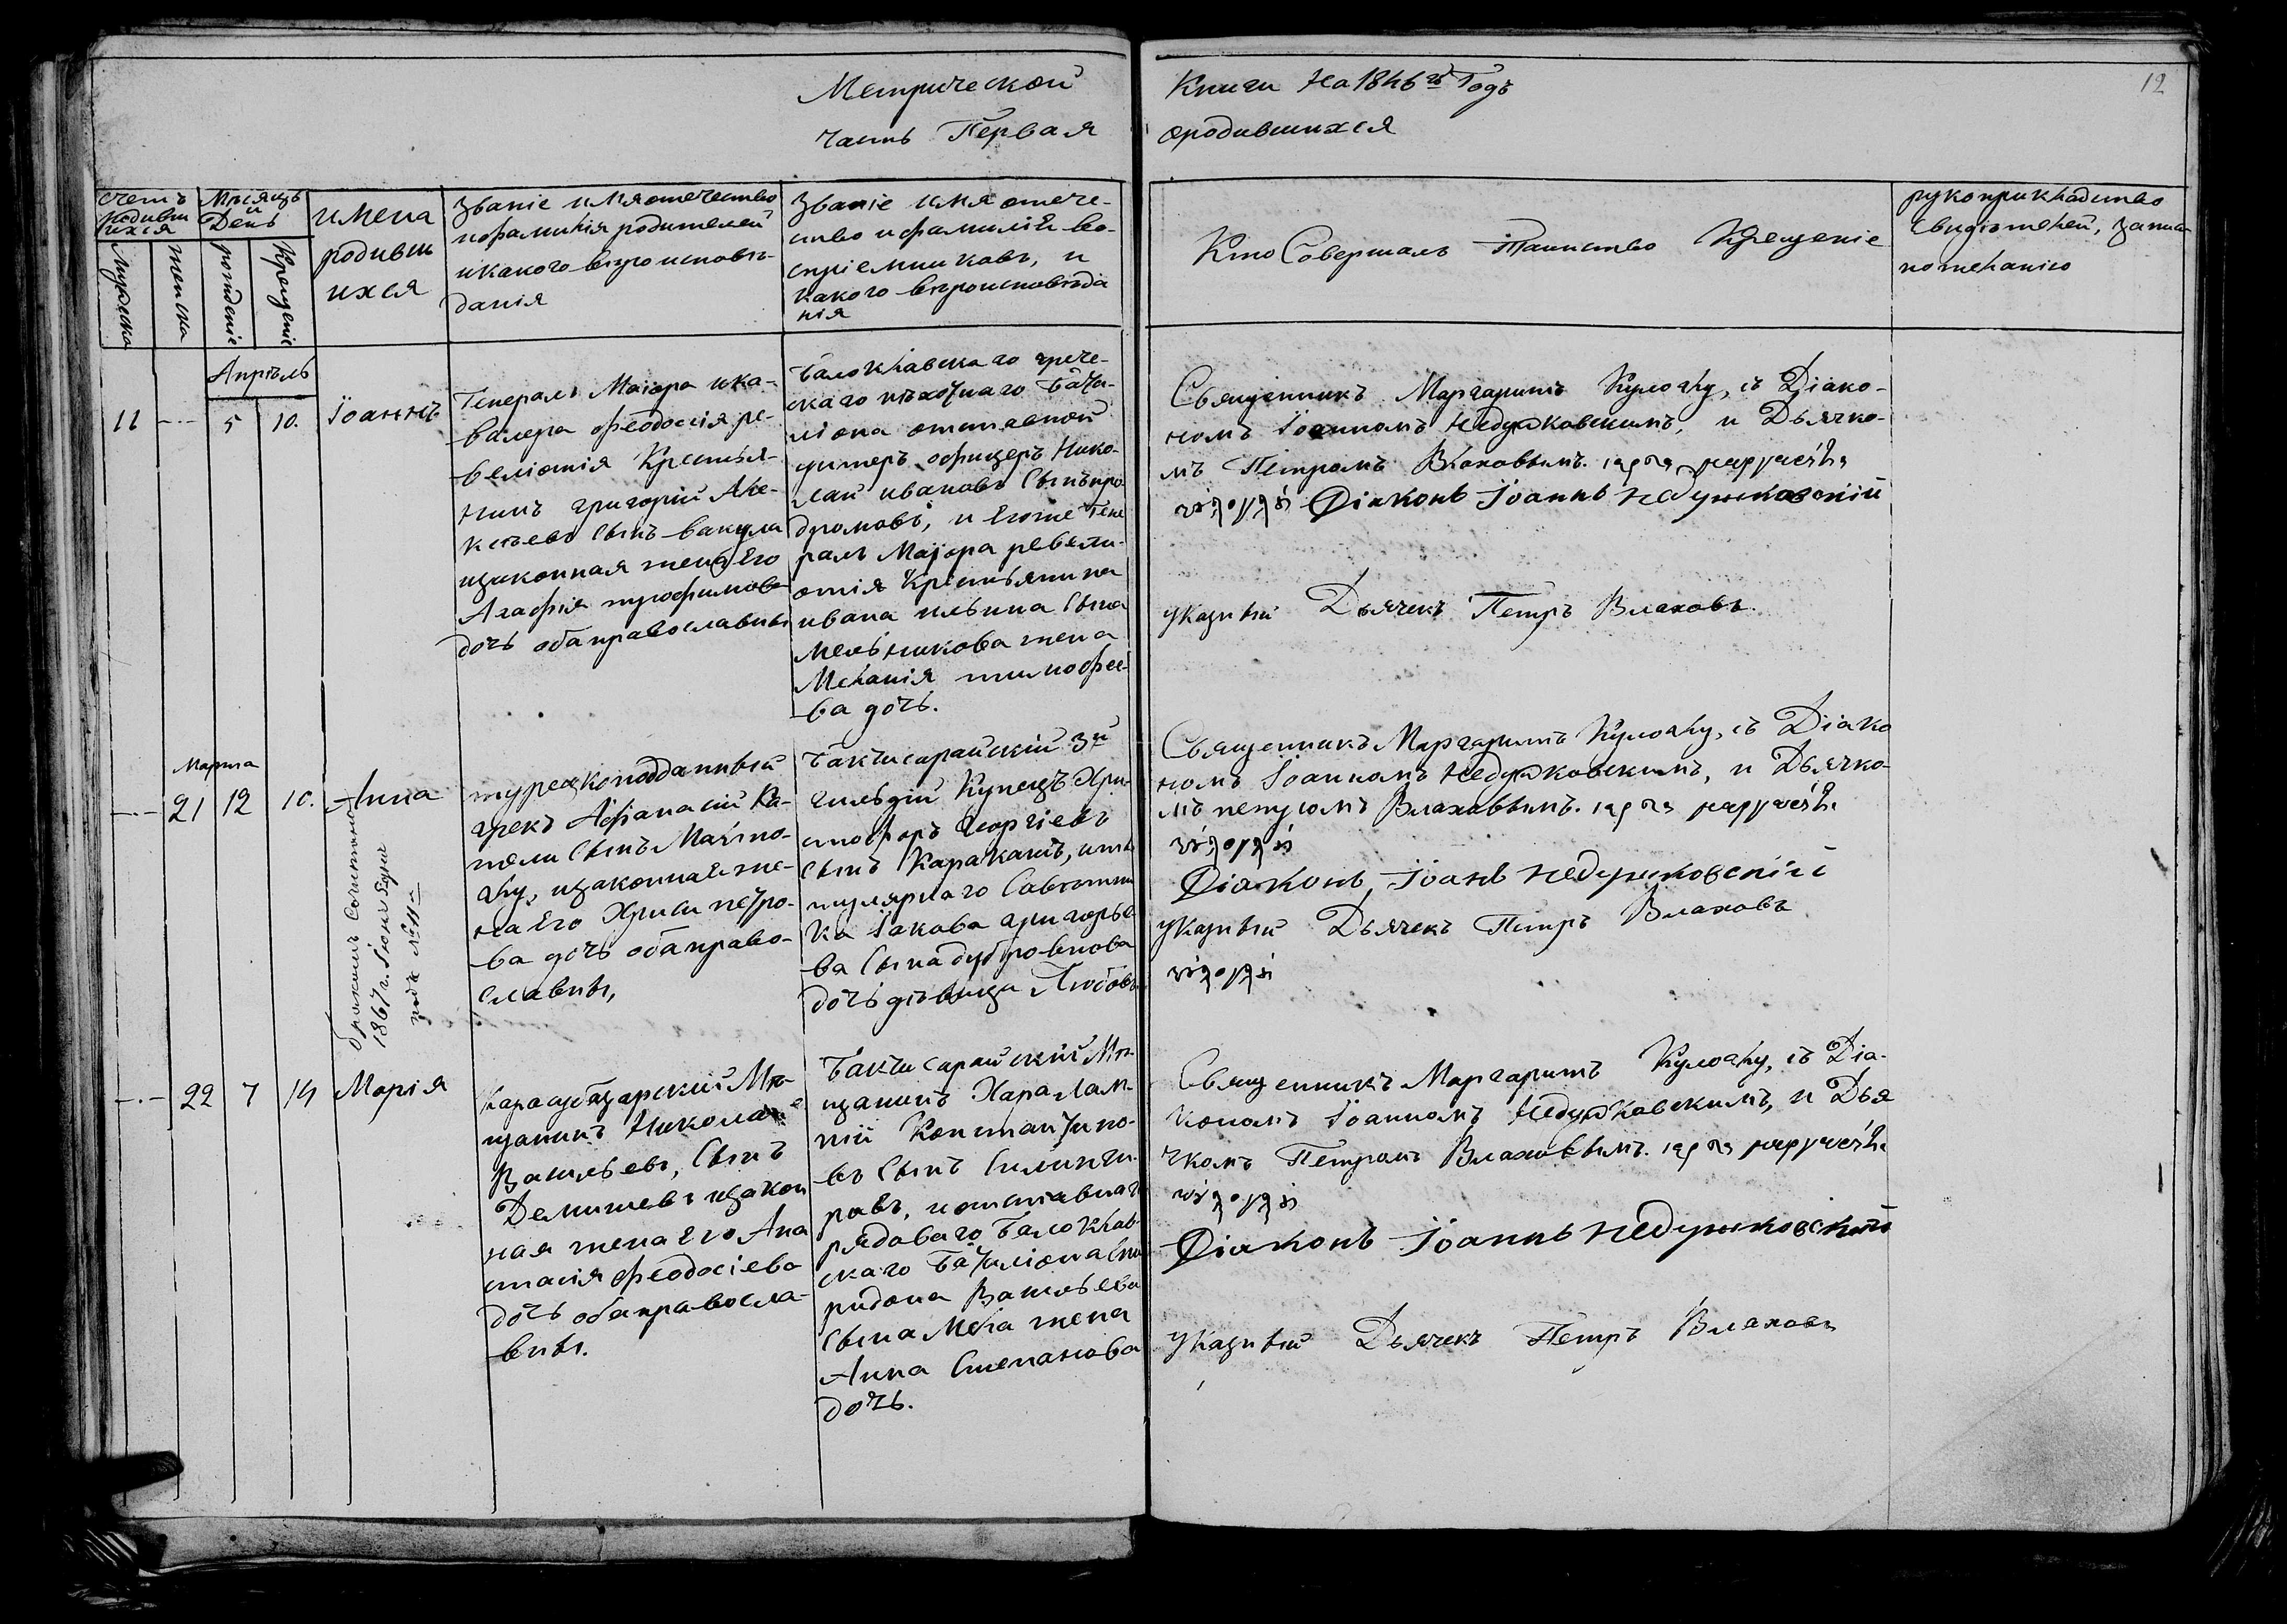 Метрической
часть Первая
Книги на 1846й Годъ
ородившихся
12
счетъ
родивш
ихся
Мѣсяцъ
и
День
мужеска
женска
рожденіе
Крещеніе
имена
родивш
ихся
Званіе имя отечество
ифамилія родителей
икакого вѣроисповѣ-
данія
Званіе имя отече-
ство ифамилія во-
спріемниковъ, и
какого вѣроисповѣда
нія
Кто Совершалъ Таинство Крещеніе
рукоприкладство
свидѣтелей, записи
пожеланію
Апрѣль
11
5
10.
Іоаннъ
Генералъ Маіора ика-
валера Ѳеодосія ре-
веліотія Крестья-
нинъ григорій Але-
ксѣевъ сынъ вакула
изаконная жена Его
Агафія трофимова
дочь обаправославны
Балоклавскаго грече-
скаго пѣхотнаго Бата-
ліона отставной
унтеръ офицеръ Нико-
лай ивановъ Сынъпро
дромовъ, и Егоже Гене
ралъ Маіора ревели-
отія Крестьянина
ивана ильина Сына
Мельникова жена
Меланія тимофее-
ва дочь.
Священникъ Маргаритъ Кулоглу, съ Діако-
номъ Іоанномъ Недзялковскимъ, и Дьячко-
мъ Петромъ Влаховымъ.
Діаконъ Іоаннъ Недзялковскій
указный Дьячекъ Петръ Влаховъ.
Марта
21
12
10.
Анна
бракомъ Сочетана
1867 г. Іюня
подъ № 11
турецкоподданный
грекъ Афанасій Ка-
сынъ
изаконная же-
на Его Хриси петро-
ва дочь обаправо-
славны,
Бакчисарайскій 3й
гильдіи Купецъ Хри-
стофоръ Георгіевъ
сынъ Каракашъ, и
титулярнаго Совѣтни
ка Іакова григорье
ва Сына дубровнова
дочь дѣвица Любовь
Священникъ Маргаритъ Кулоглу, съ Діако
номъ Іоанномъ Недзялковскимъ, и Дьячко-
мъ петромъ Влаховымъ.
Діаконъ, Іоанъ Недзялковскій
указный Дьячекъ Петръ Влаховъ
22
7
14
Марія
Карасубазарскій Мѣ-
щанинъ Николай
Васильевъ, Сынъ
изакон
ная жена Его Ана
стасія Ѳеодосіева
дочь обаправосла-
вны.
Бакчисарайскій Мѣ-
щанинъ Харалам-
пій Константино-
въ Сынъ
ровъ, иотставнаго
рядоваго Балоклав-
скаго Баталіона Спи
ридона Васильева
сына жена
Анна Степанова
дочь.
Священникъ Маргаритъ Кулоглу, съ Діа-
кономъ Іоанномъ Недзялковскимъ, и Дья
чкомъ Петромъ Влаховымъ.
Діаконъ Іоаннъ Недзялковскій
указный Дьячекъ Петръ Влаховъ